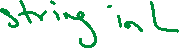 string in L